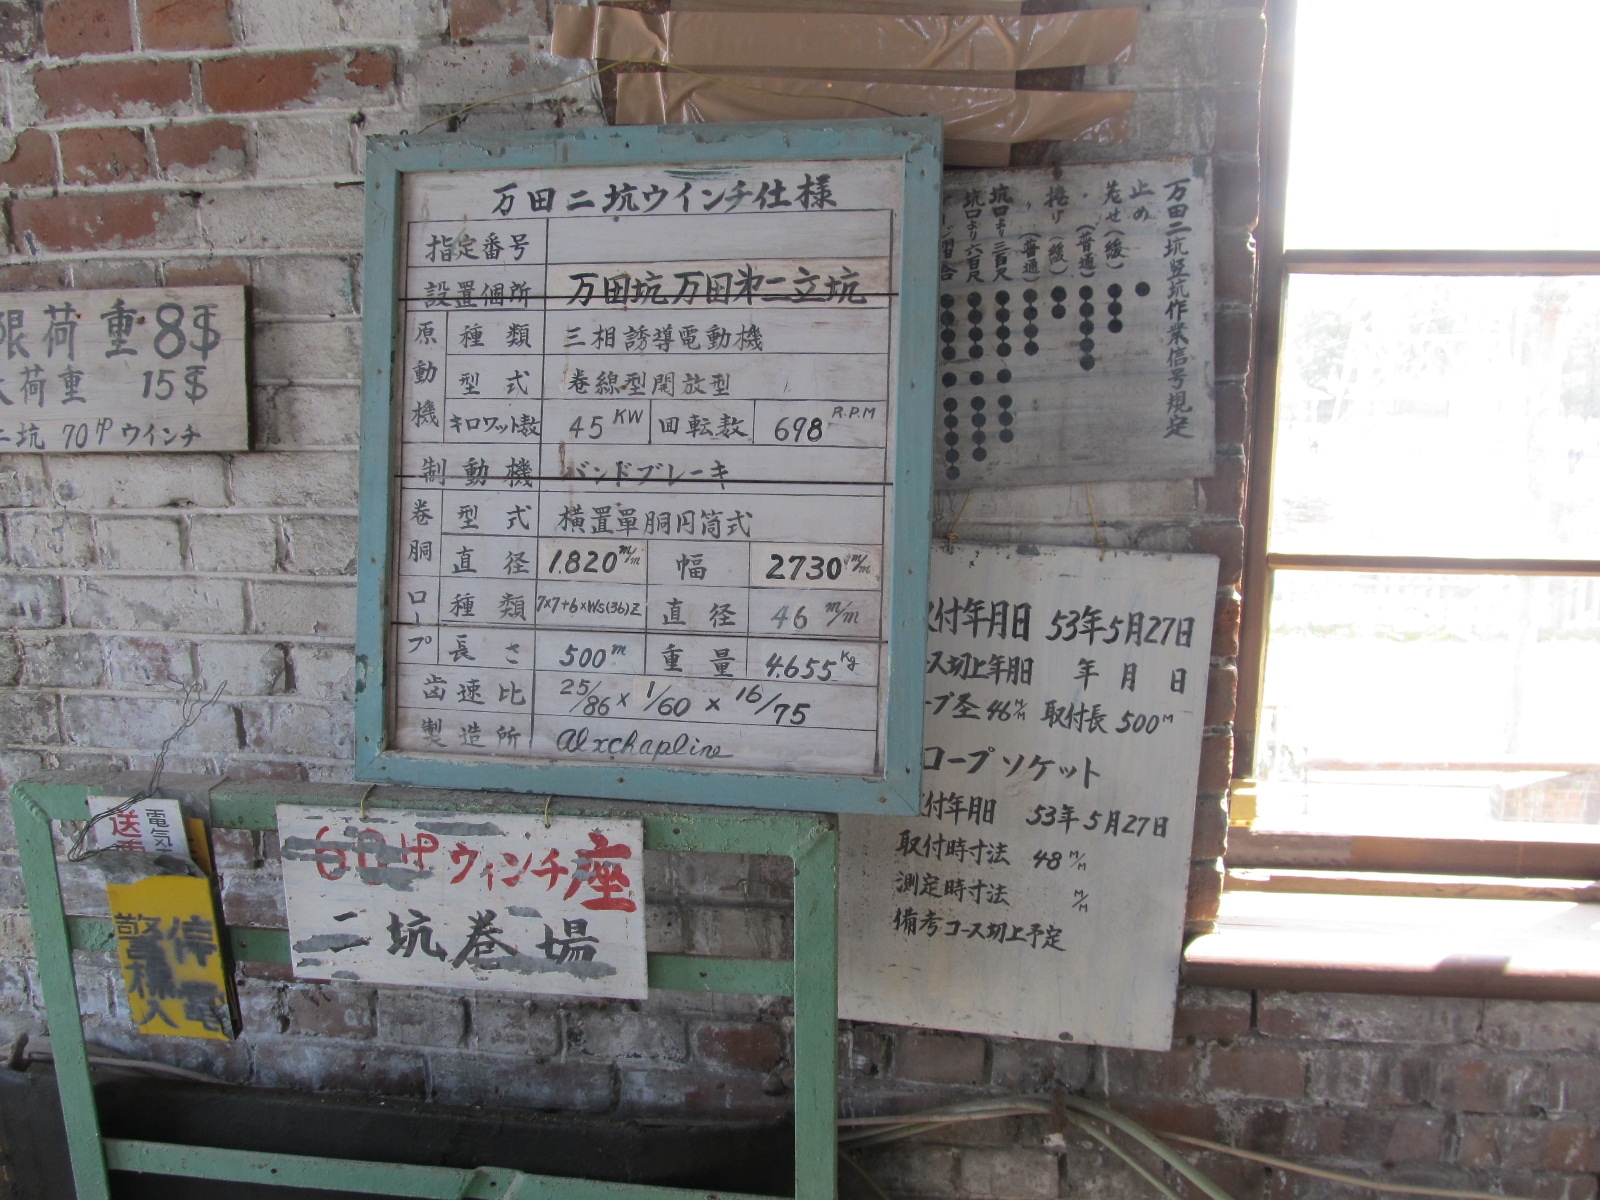 限荷重 8T
荷重 15T
二坑 70HP ウインチ
万田二坑ウインチ仕様
指定番号
設置個所 万田坑万田第二立坑
原動機 種類 三相誘導電動機
型式 巻線型開放型
キロワット数 45 KW 回転数 698 R.P.M
制動機 バンドブレーキ
巻胴 型式 横置單胴円筒式
直径 1.820 m/m 幅 2730 m/m
ロープ 種類 7×7+6×WS(36)Z 直径 46 m/m
長さ 500 m 重量 4.655 Kg
歯速比 25/86 × 1/60 × 16/75
製造所 alxchapline
万田二坑竪坑作業信号規定
止め
巻せ(緩)
〃(普通)
捲げ(緩)
〃(普通)
坑口より三百尺
坑口より六百尺
付年月日 53年5月27日
ース切上年月日 年 月 日
ープ径 46 M/M 取付長 500M
ロープソケット
付年月日 53年5月27日
取付時寸法 48 M/M
測定時寸法 M/M
備考 コース切上予定
電気
送電
停電
警標入
60HP ウィンチ座
二坑巻場